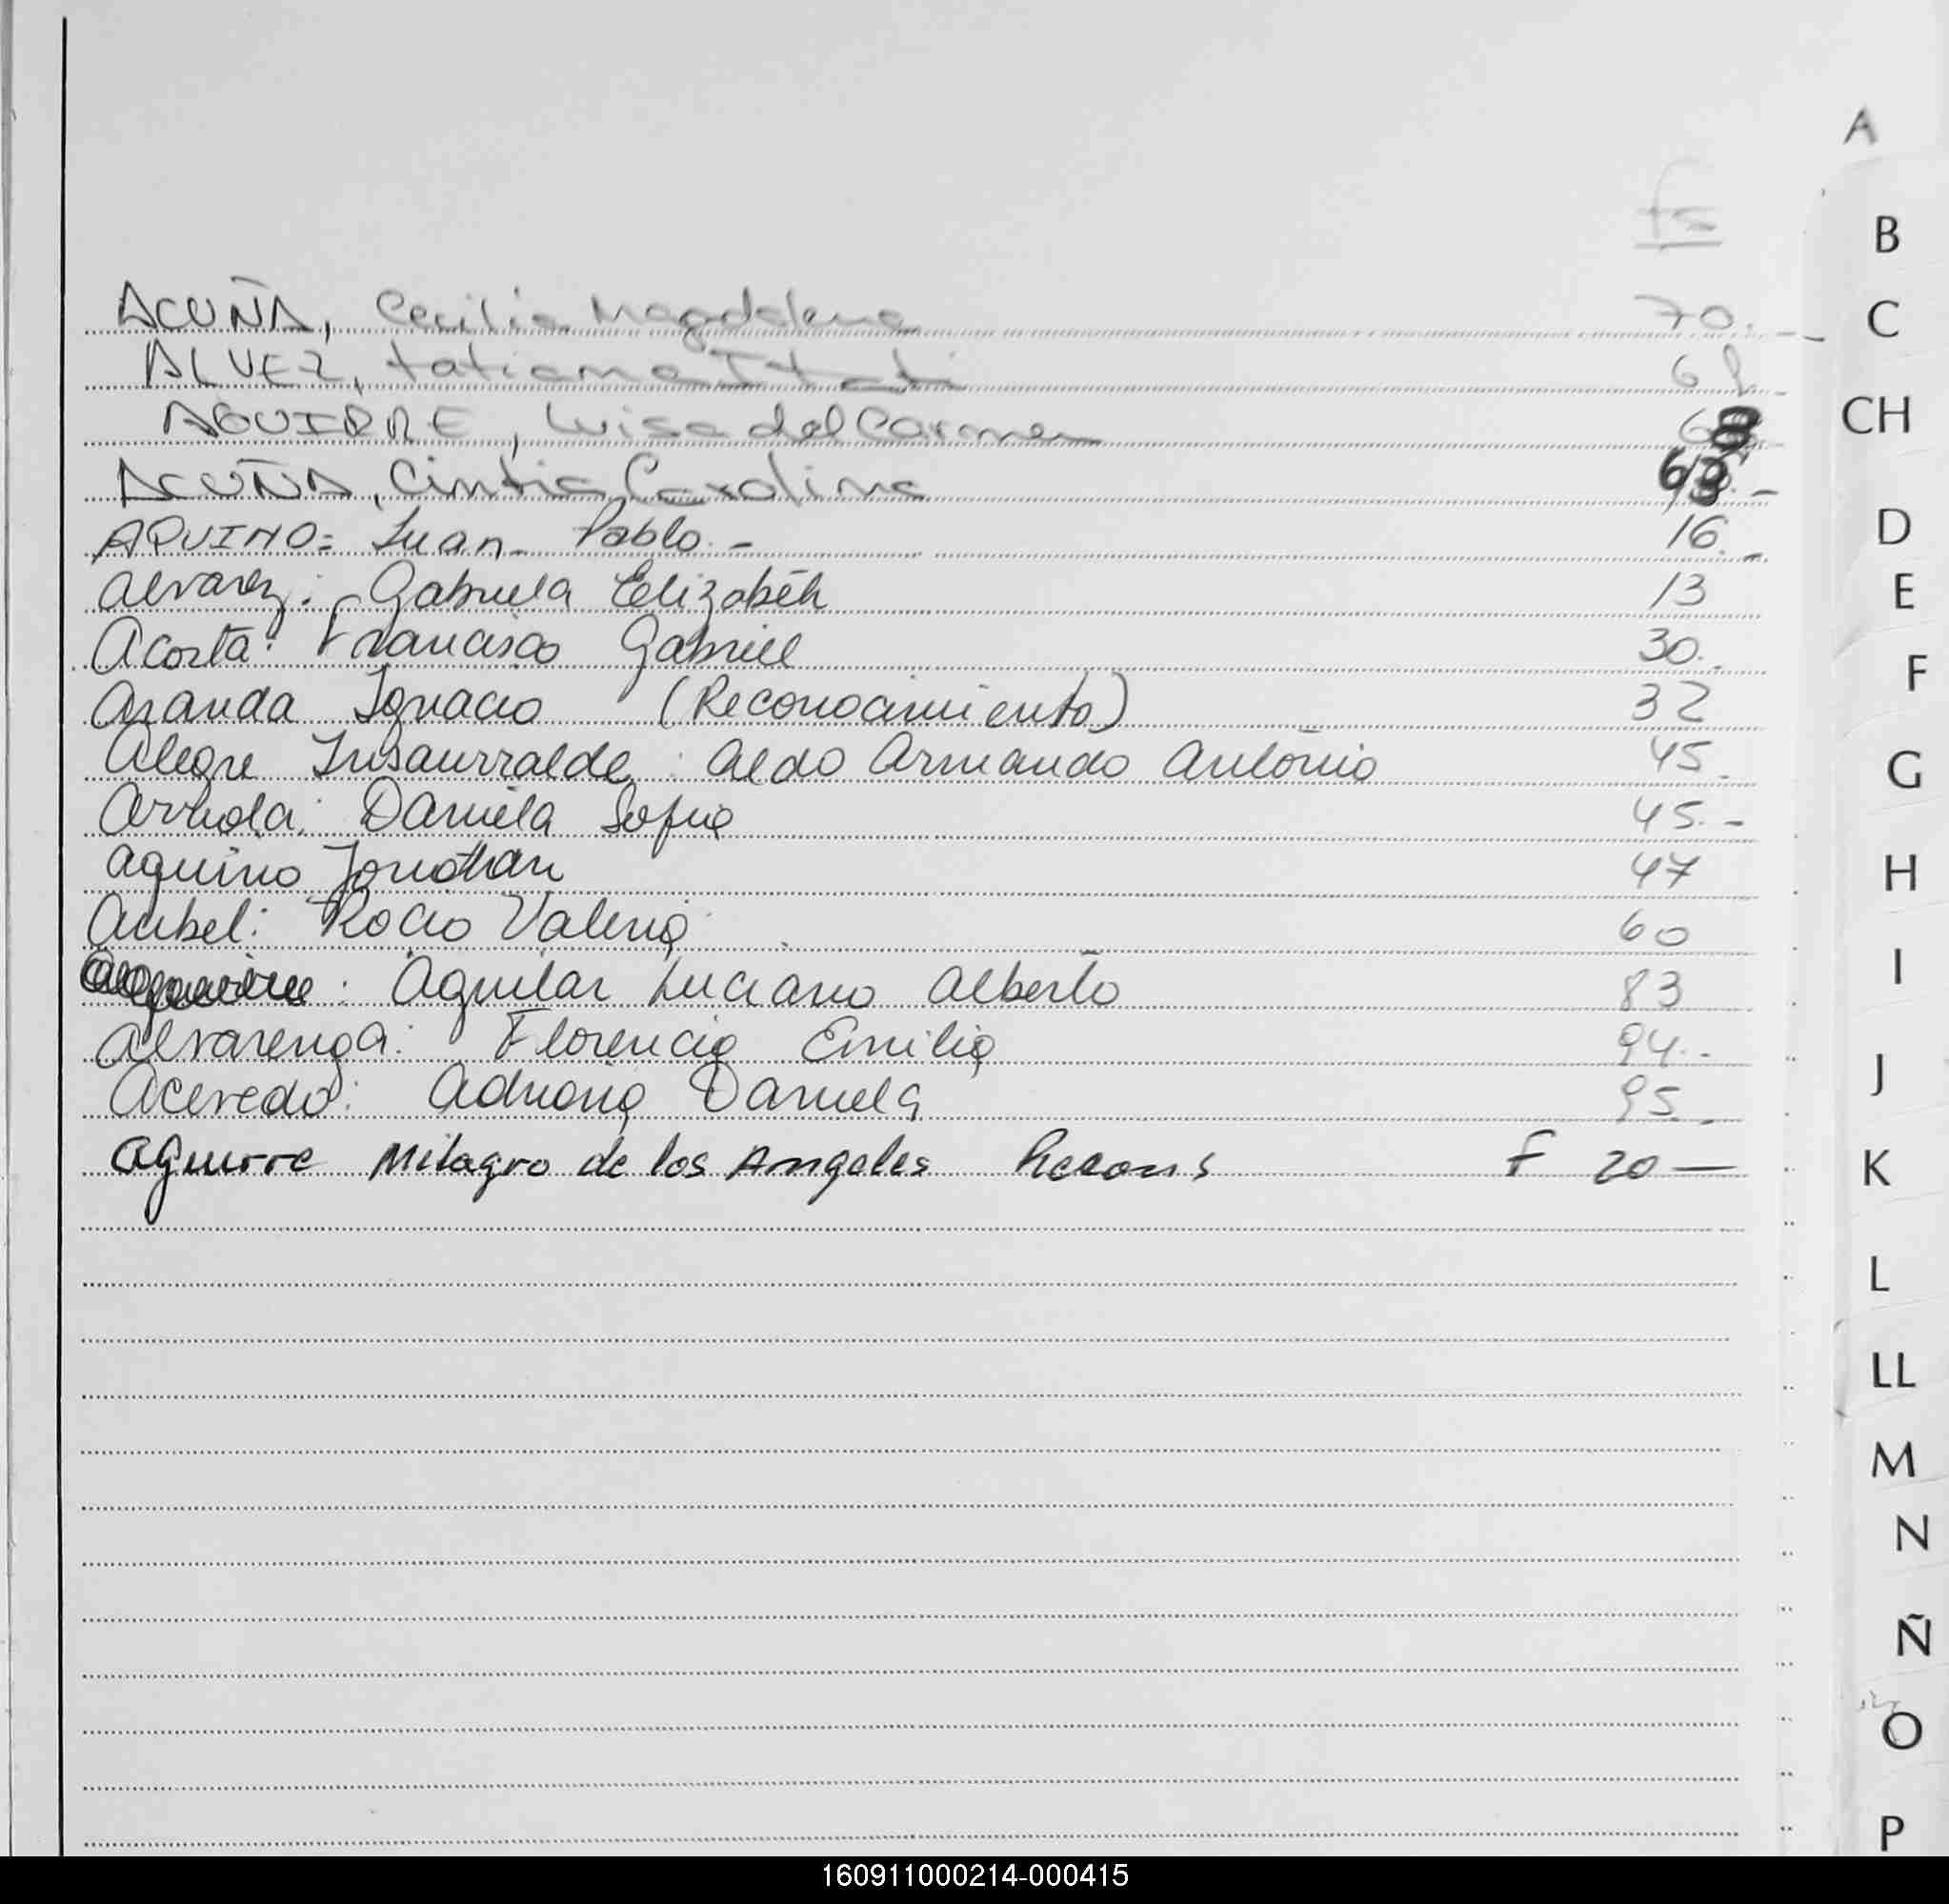 A
fs
B
ACUÑA, Cecilia Magdalena 70.-
C
ALVEZ, tatiana Itati
AGUIRRE, Luisa del Carmen 68
CH
ACUÑA, Cintia Carolina
AQUINO: Juan Pablo.- 16.-
D
Alvarez: Gabriela Elizabeth 13
E
Acosta: Francisco Gabriel 30.-
F
Aranda Ignacio (Reconocimiento) 32
Alegre Insaurralde: Aldo Armando Antonio 45.
G
Arriola: Daniela Sofia 45.-
Aquino Jonathan 47
H
Aubel: Rocio Valeria 60
I
Aguilar Luciano Alberto 83
Alvarenga: Florencia Emilia 94.-
J
Acevedo: Adriana Daniela 95.
Aguirre Milagro de los Angeles Recons F 20 —
K
L
LL
M
N
Ñ
O
P
160911000214-000415